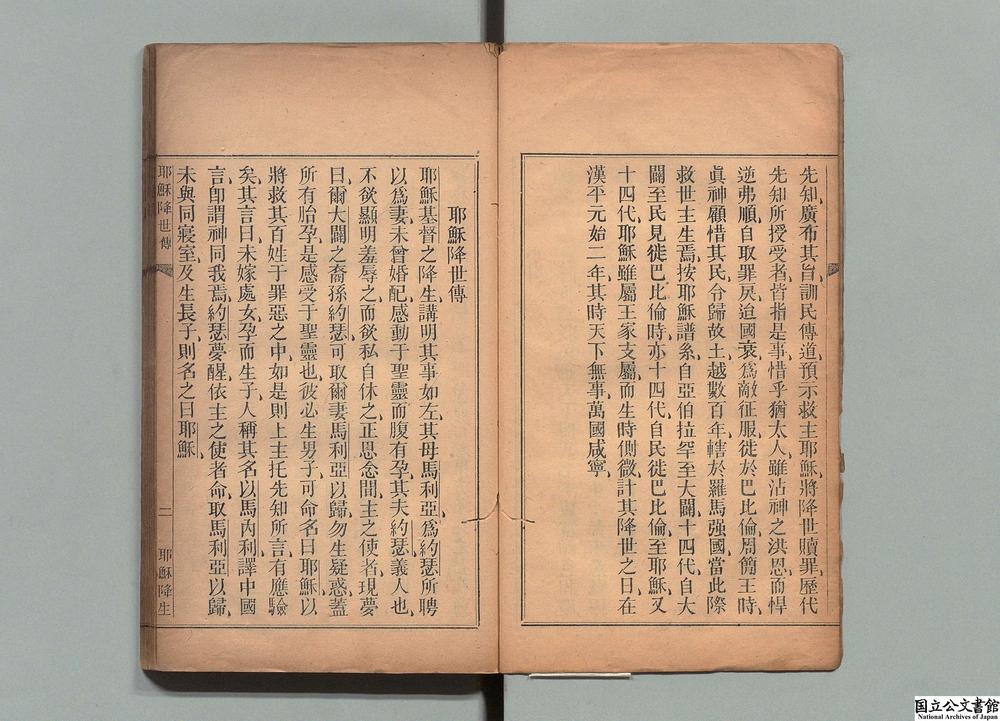 先知、廣布其旨、訓民傳道、預示救主耶穌、將降世贖罪、歷代
先知、所授受者、皆指是事、惜乎猶太人、雖沾神之洪恩、而悍
逆弗順、自取罪戾、迨國衰、爲敵征服、徙於巴比倫、周簡王時、
眞神顧惜其民、令歸故土、越數百年、轄於羅馬强國、當此際
救世主生焉、按耶穌譜系、自亞伯拉罕至大闢十四代、自大
闢至民見徙巴比倫時、亦十四代、自民徙巴比倫、至耶穌、又
十四代、耶穌雖屬王家支屬、而生時側微、計其降世之日、在
漢平元始二年、其時天下無事、萬國咸寧、
耶穌降世傳
耶穌基督之降生、講明其事如左、其母馬利亞、爲約瑟所聘
以爲妻、未曾婚配、感動于聖靈、而腹有孕、其夫約瑟、義人也、
不欲顯明羞辱之、而欲私自休之、正思念間、主之使者、現夢
曰、爾大闢之裔孫約瑟、可取爾妻馬利亞以歸、勿生疑惑、蓋
所有胎孕、是感受于聖靈也、彼必生男子、可命名曰耶穌、以
將救其百姓于罪惡之中、如是則上主托先知所言、有應驗
矣、其言曰、未嫁處女、孕而生子、人稱其名、以馬內利、譯中國
言、卽謂神同我焉、約瑟夢醒、依主之使者命、取馬利亞以歸、
未與同寢室、及生長子、則名之曰耶穌、
耶穌降世傳
二
耶穌降生
国立公文書館
National Archives of Japan